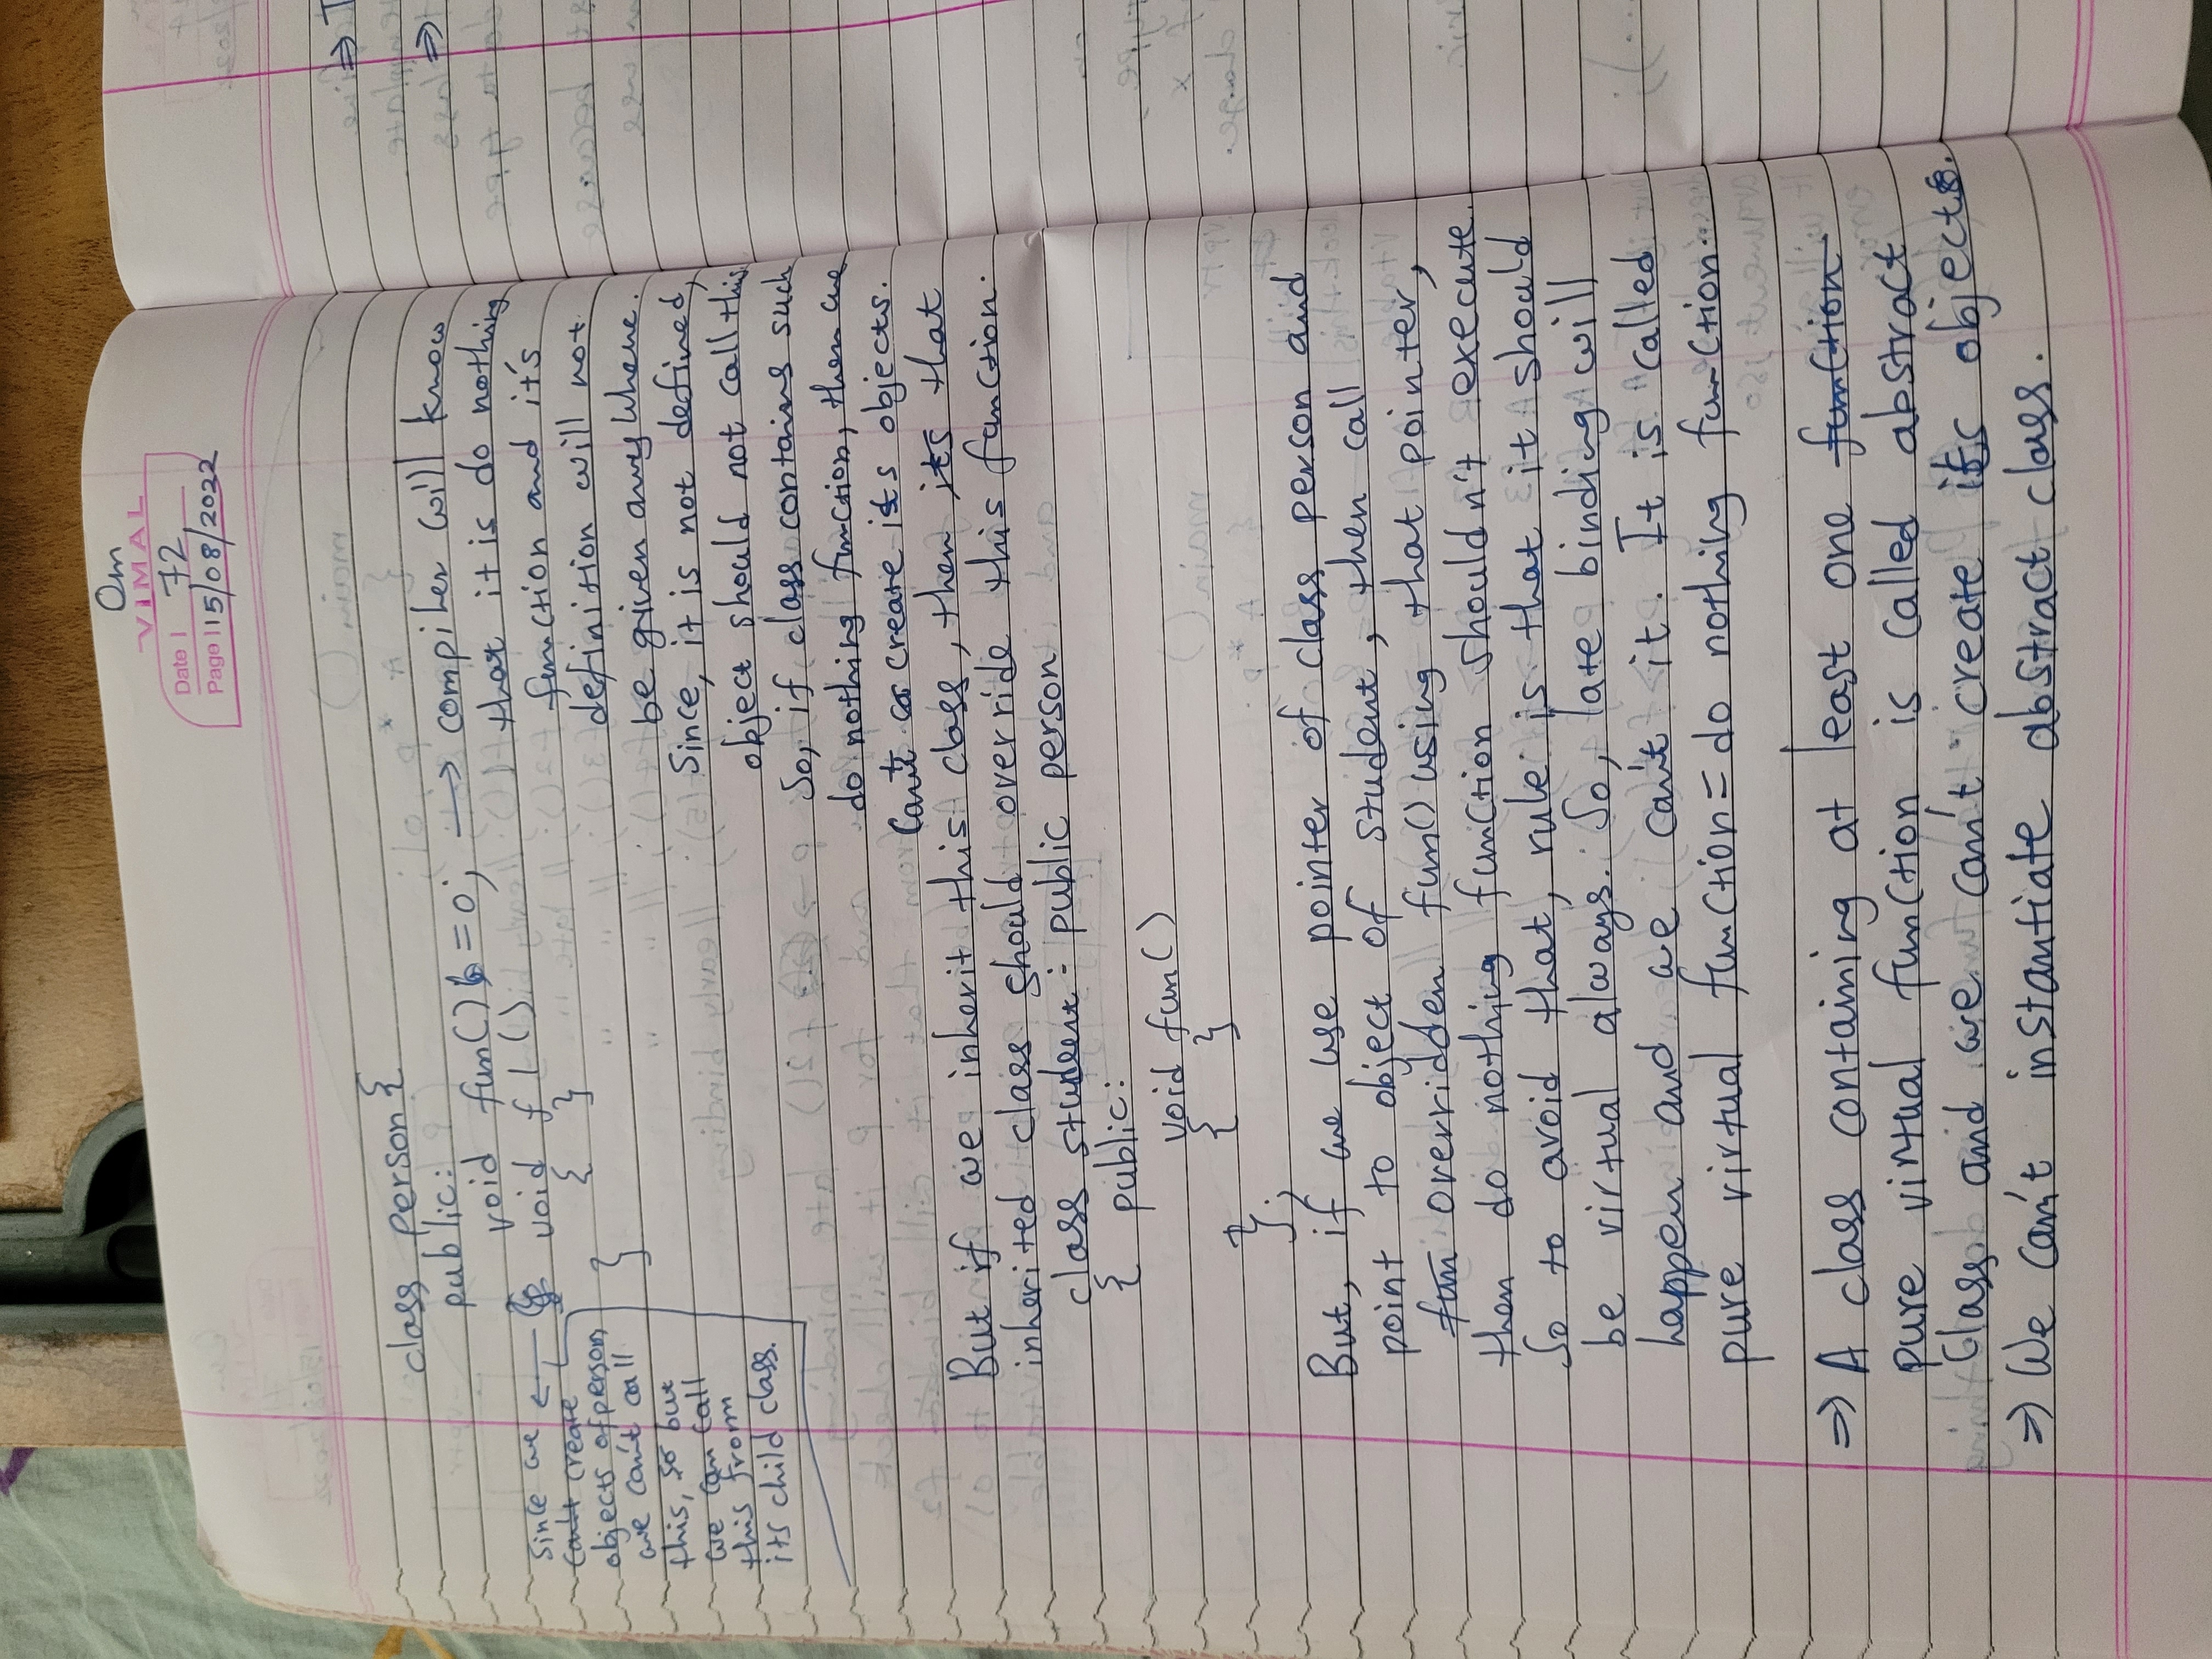 Om
VIMAL
Date | 72
Page | 15/08/2022
class person {
public:
void fun() =0; → compiler will know
that it is do nothing
function and it's
definition will not
be given anywhere.
Since, it is not defined,
object should not call this
So, if class contains such
do nothing function, then we
can't create its objects.
void f1()
{ }
}
Since we ←
can't create
objects of person,
we can't call
this, so but
we can call
this from
its child class.
But if we inherit this class, then its that
inherited class should override this function.
class student : public person
{ public:
void fun()
{ }
};
But, if we use pointer of class person and
point to object of student, then call
fun overridden fun() using that pointer,
then do nothing function shouldn't execute.
So to avoid that, rule is that it should
be virtual always. So, late binding will
happen and we can't it. It is called
pure virtual function = do nothing function.
⇒ A class containing at least one function
pure virtual function is called abstract
class and we can't create its objects.
⇒ We can't instantiate abstract class.
⇒
⇒